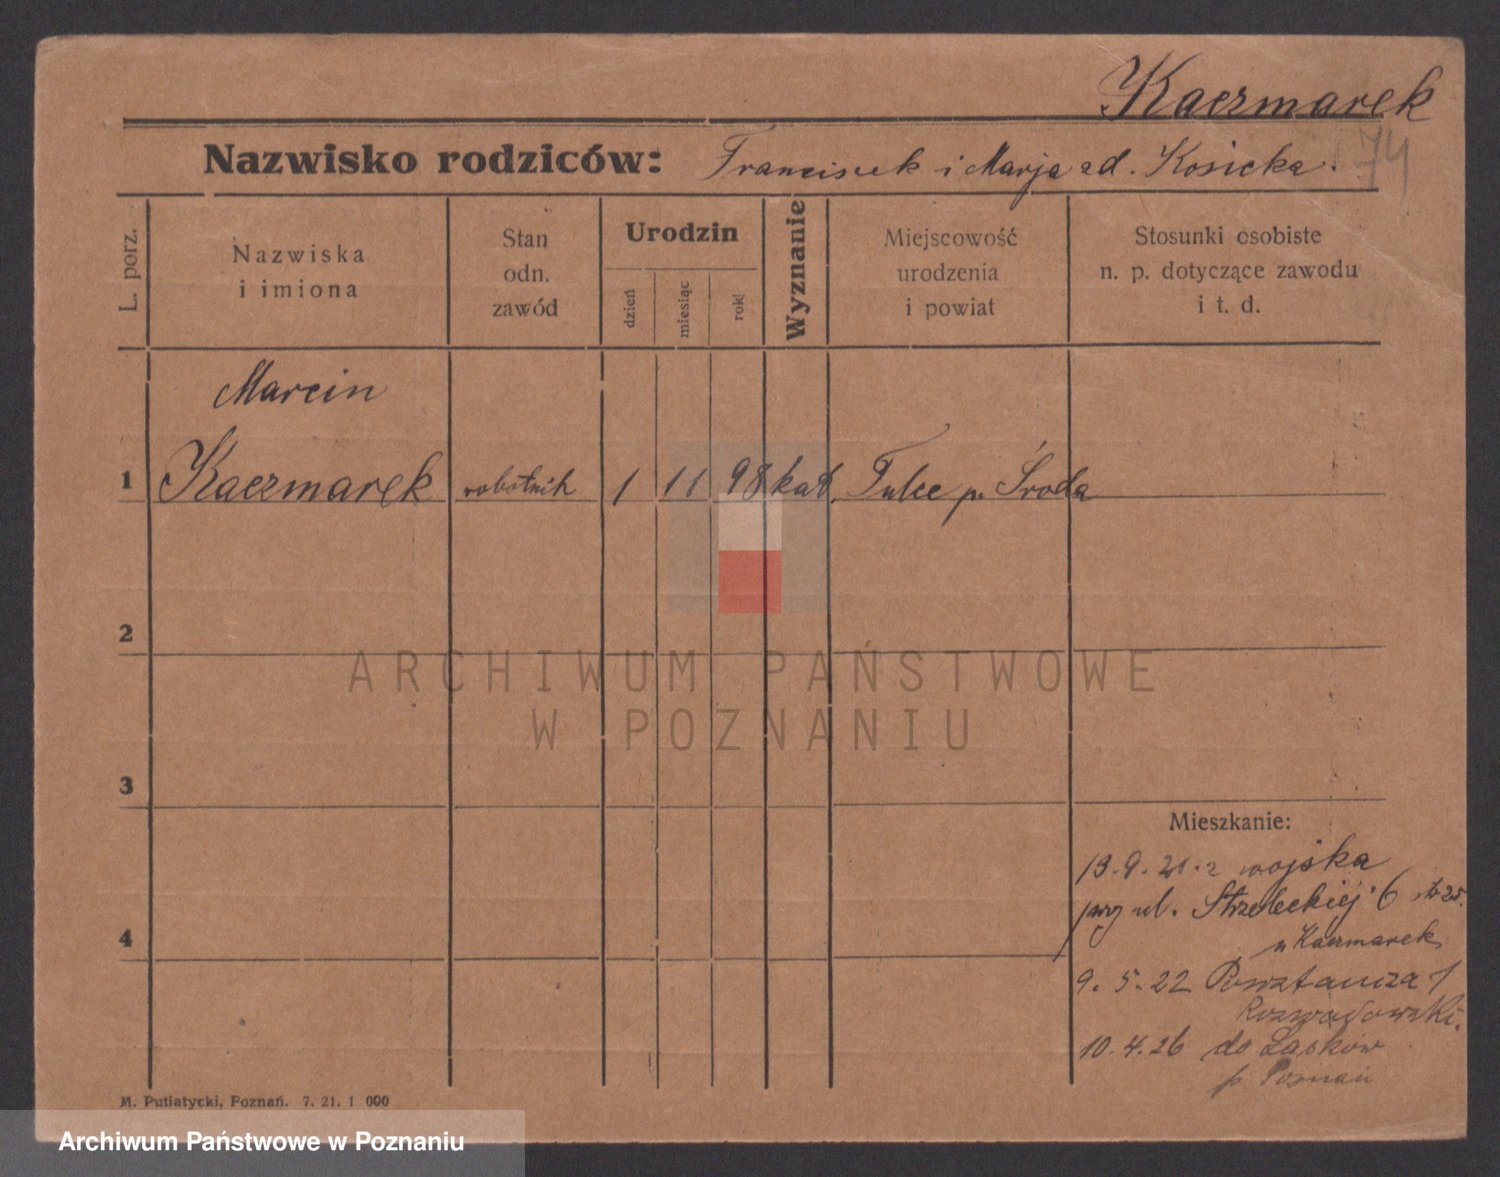 Kaczmarek
74
Nazwisko rodziców: Franciszek i Marja zd. Kosicka.
L. porz.
Nazwiska
i imiona
Stan
odn.
zawód
Urodzin
dzień
miesiąc
rok
Wyznanie
Miejscowość
urodzenia
i powiat
Stosunki osobiste
n. p. dotyczące zawodu
i t. d.
Marcin
1 Kaczmarek robotnik 1 11 98 kat. Tulce p. Środa
2
ARCHIWUM PAŃSTWOWE
W POZNANIU
3
Mieszkanie:
z wojska
przy ul. Strzeleckiej 6
u Kaczmarek
4
9. 5. 22 Powstańcza 1
Rozwadowski.
10. 4. 26 do Lasków
p. Poznań
M. Putiatycki, Poznań. 7. 21. 1 000
Archiwum Państwowe w Poznaniu